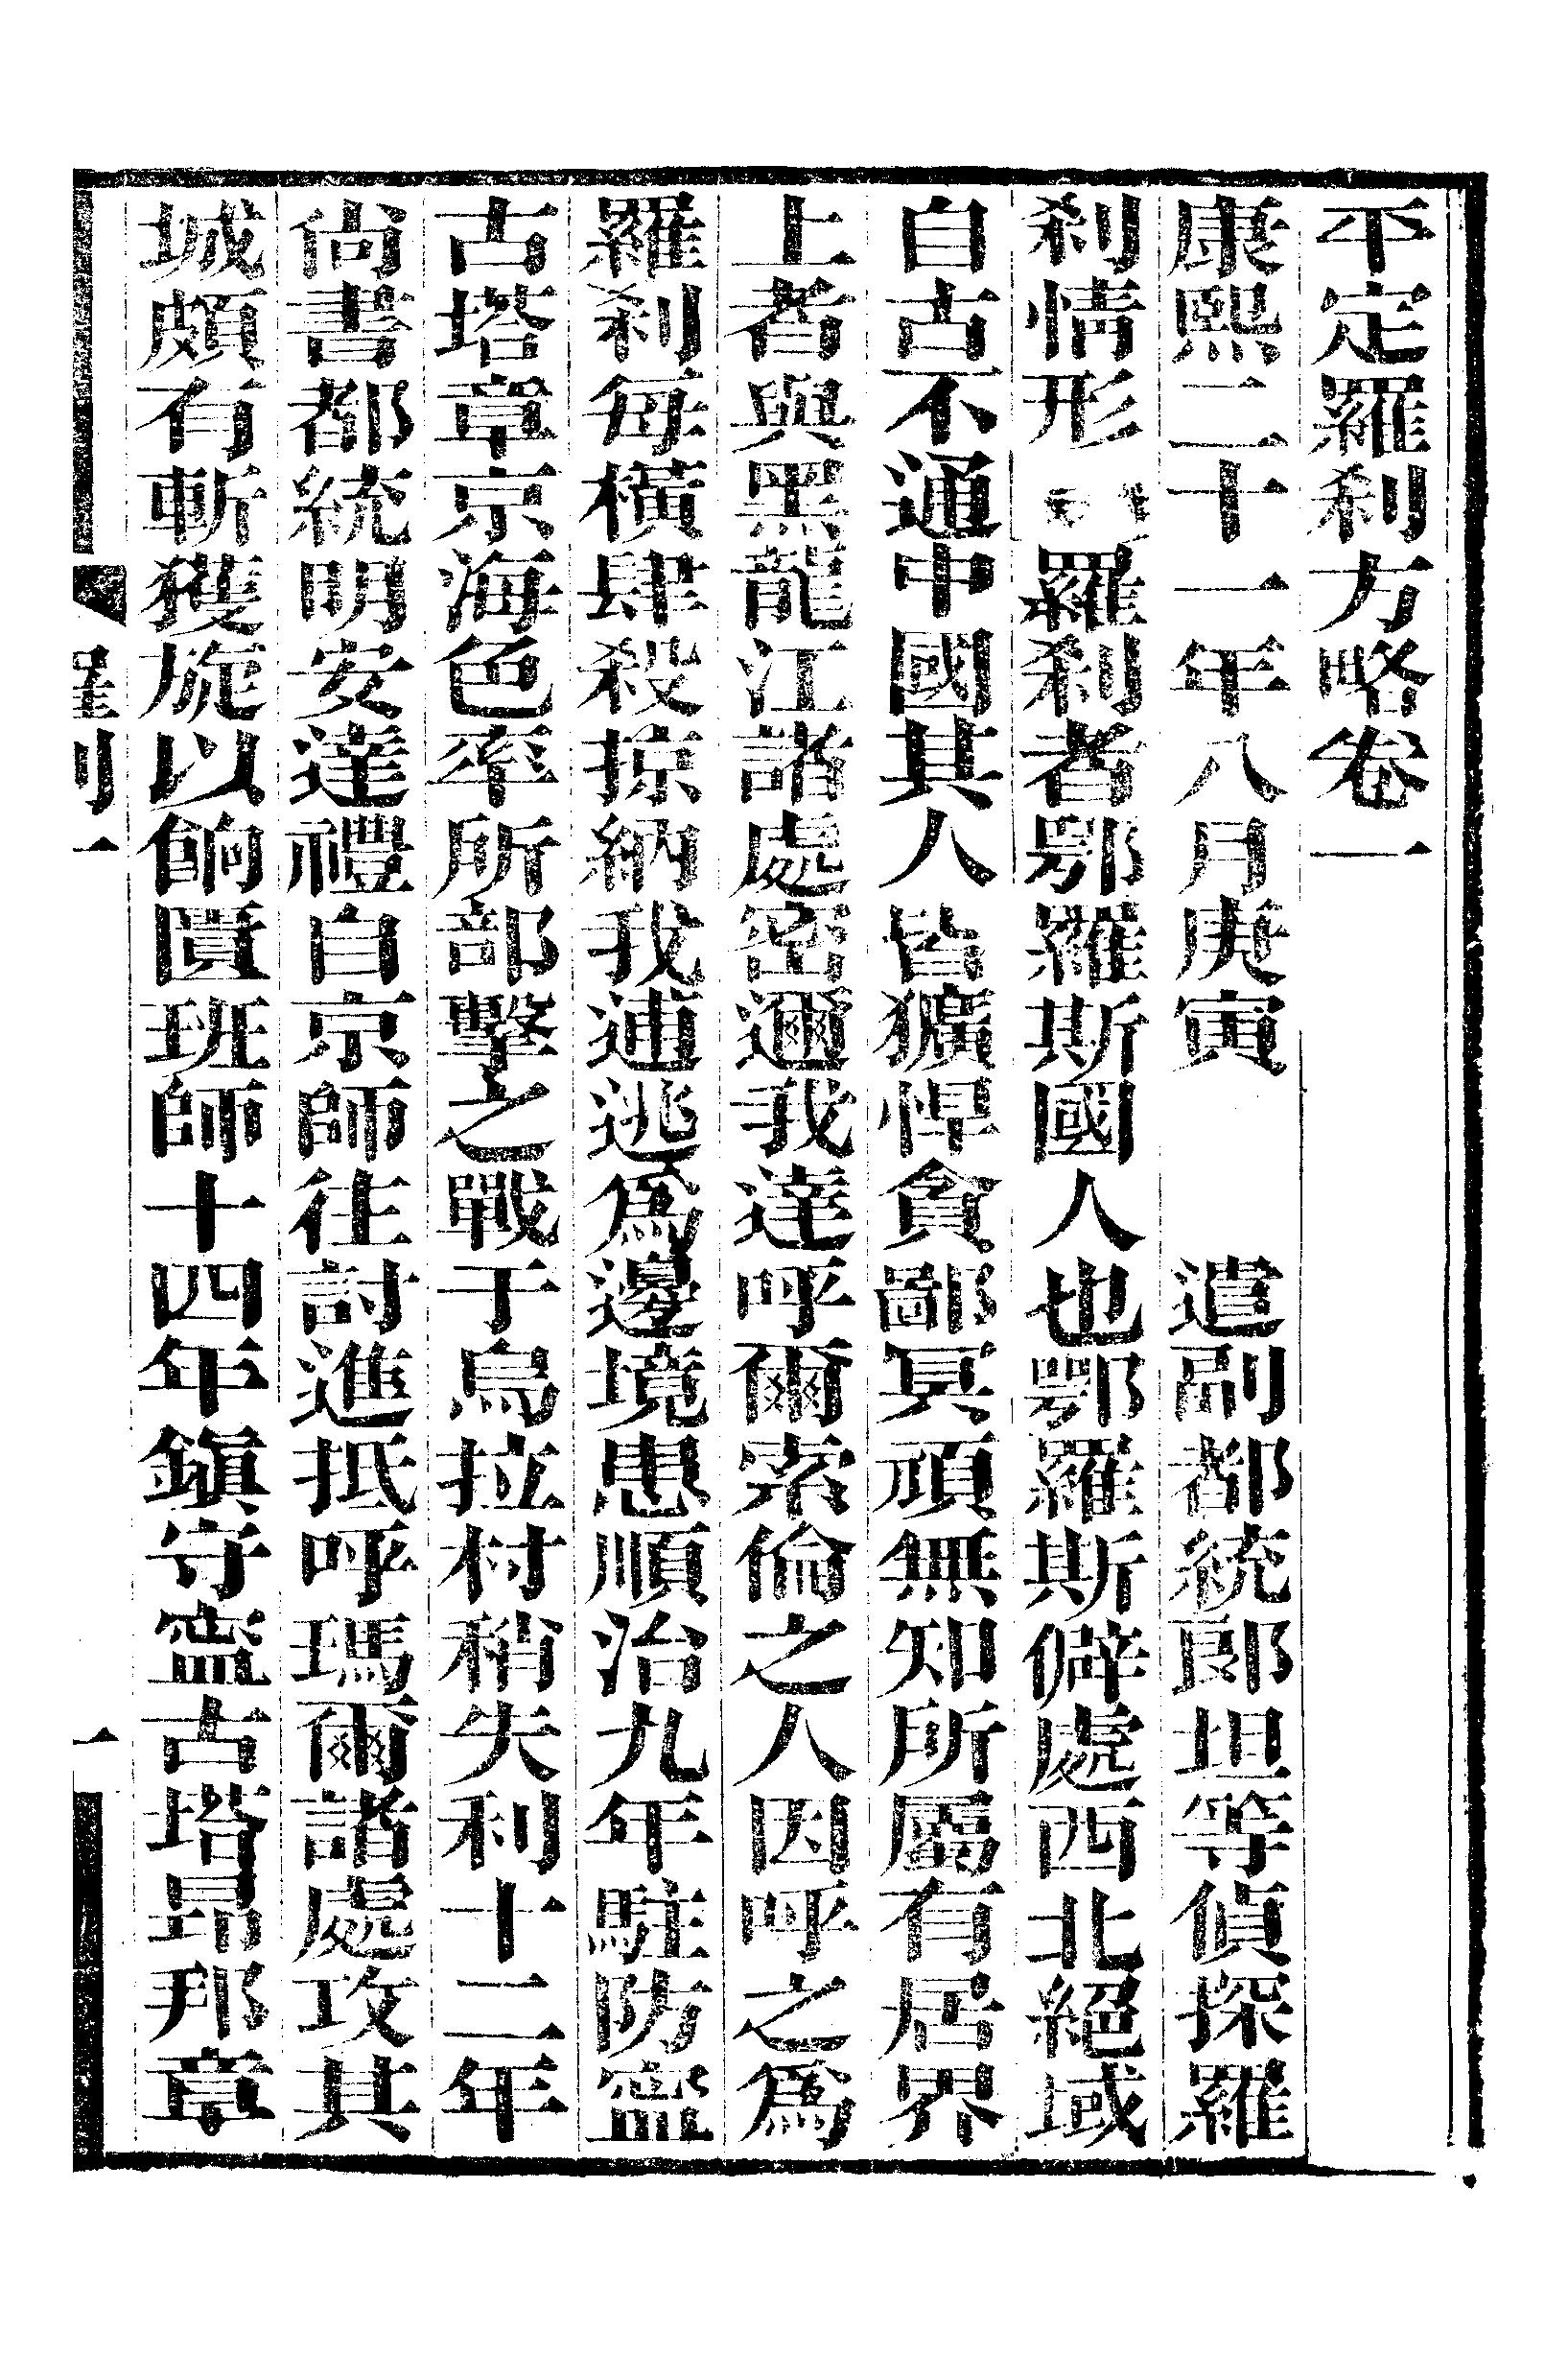 平定羅刹方略卷一
康熙二十一年八月庚寅　　遣副都統郎坦等偵探羅
刹情形　羅刹者鄂羅斯國人也鄂羅斯僻處西北絕域
自古不通中國其人皆獷悍貪鄙冥頑無知所屬有居界
上者與黑龍江諸處密邇我達呼爾索倫之人因呼之爲
羅刹每橫肆殺掠納我逋逃爲邊境患順治九年駐防寧
古塔章京海色率所部擊之戰于烏拉村稍失利十二年
尚書都統明安達禮自京師往討進抵呼瑪爾諸處攻其
城頗有斬獲旋以餉匱班師十四年鎮守寧古塔昂邦章
羅刹一
一